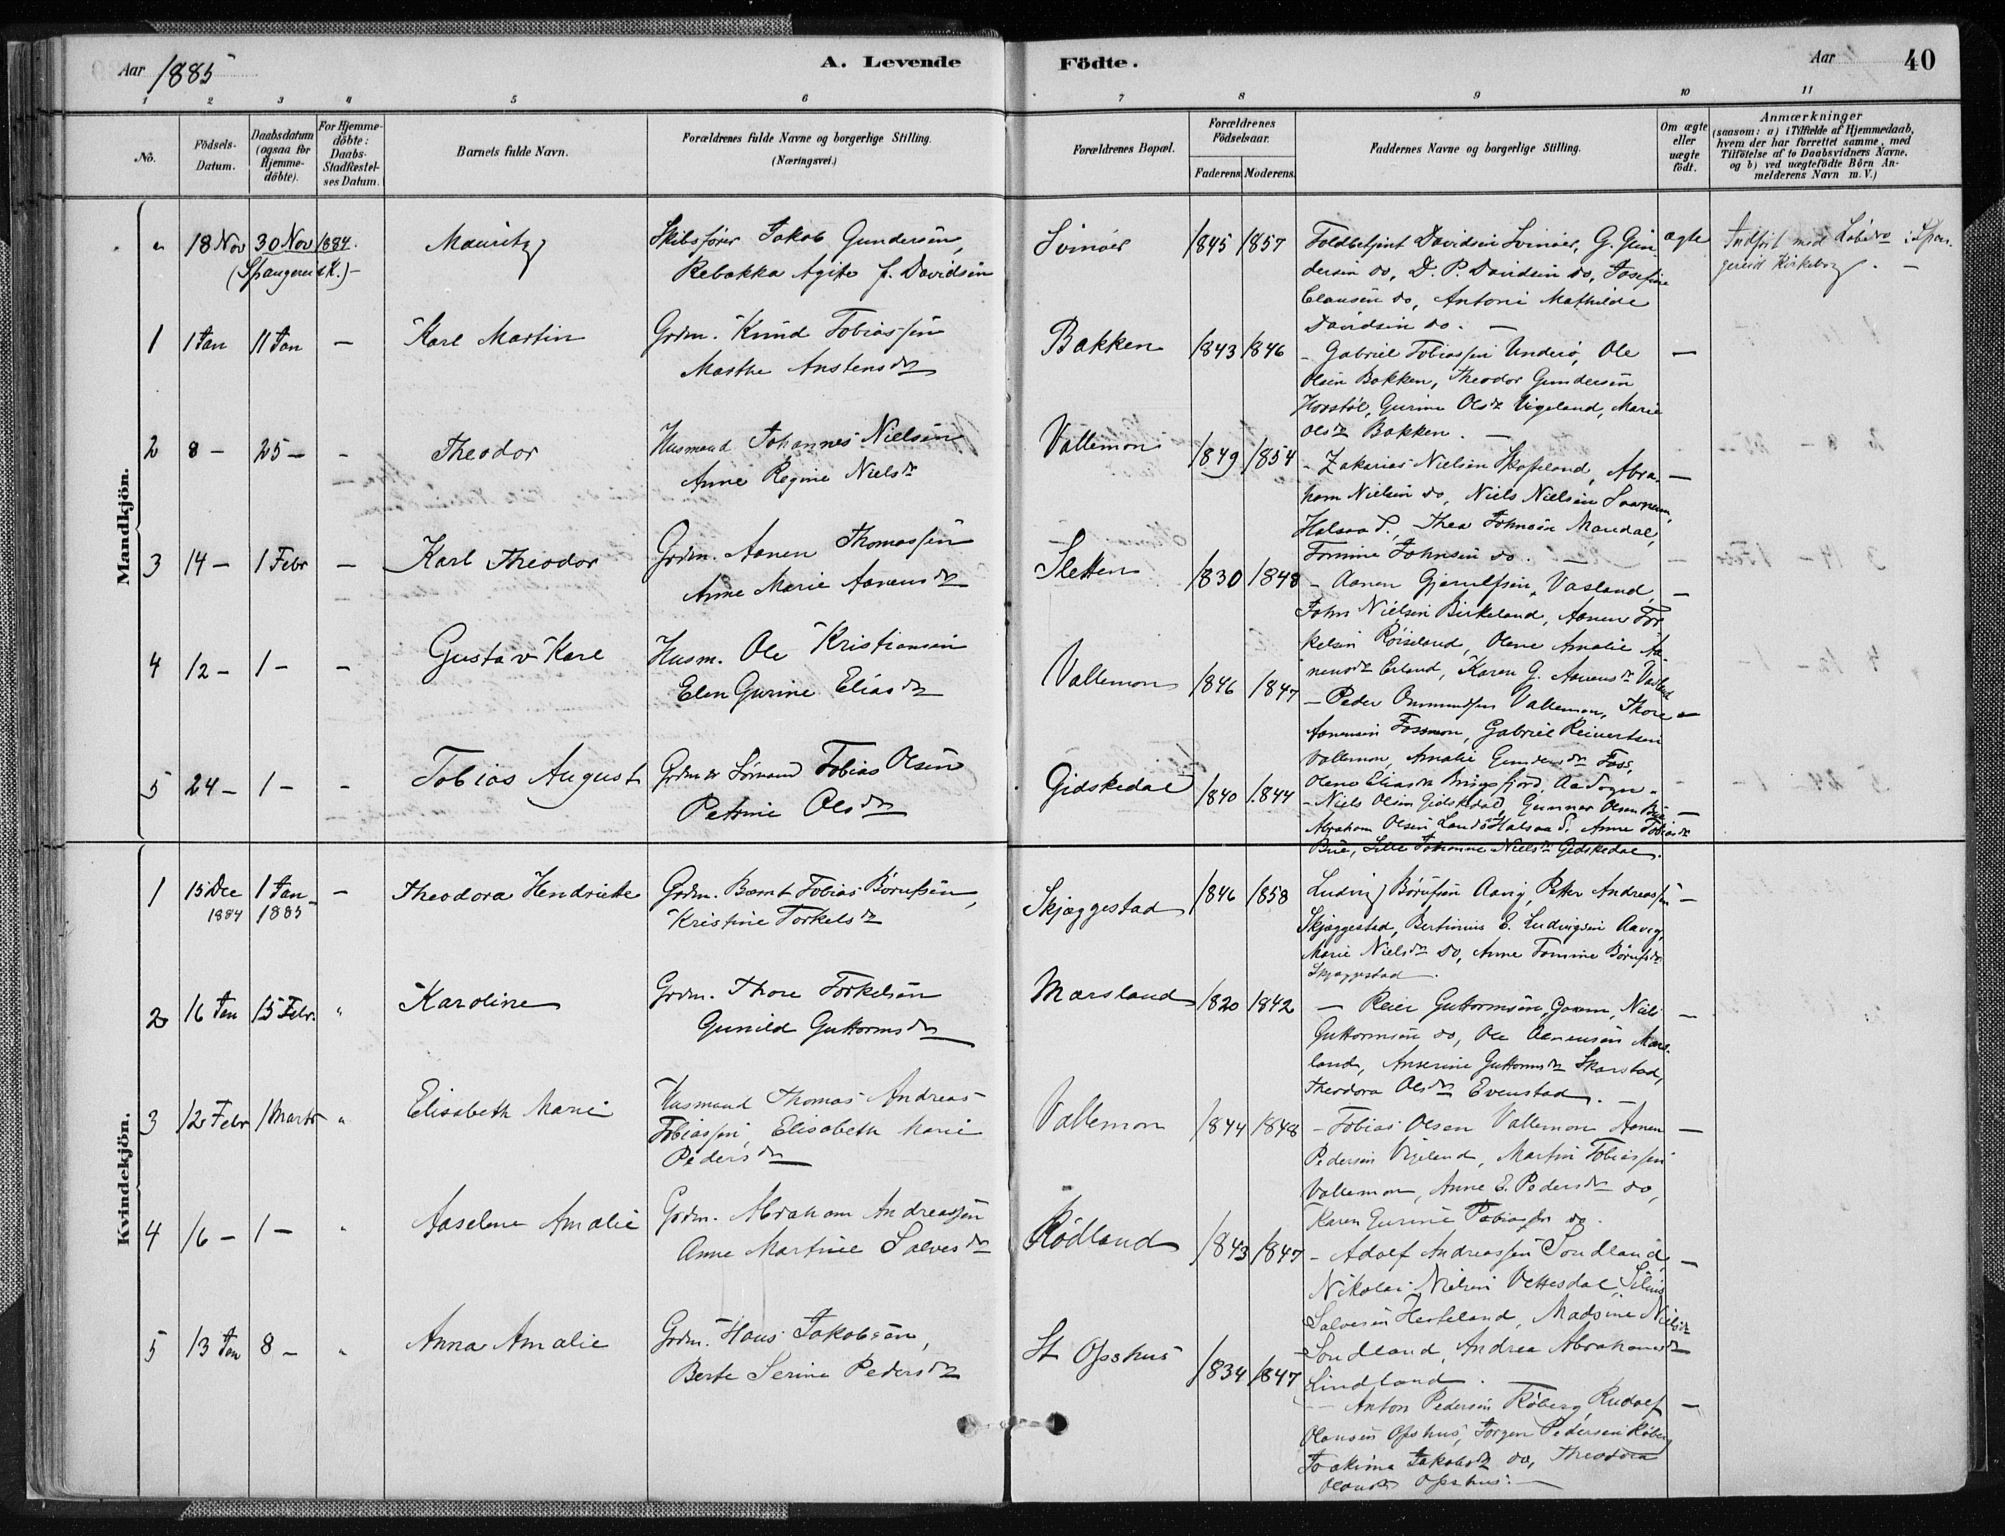 Aar 1885
A. Levende
Födte.
Aar
40
1 2 3 4 5 6 7 8 9 10 11
No.
Födsels-
Datum.
Daabsdatum
(ogsaa for
Hjemme-
döbte).
For Hjemme-
döbte:
Daabs-
Stadfæstel-
ses Datum.
Barnets fulde Navn.
Forældrenes fulde Navne og borgerlige Stilling.
(Næringsvei.)
Forældrenes Bopæl.
Forældrenes
Födselsaar.
Faderens Moderens
Faddernes Navne og borgerlige Stilling.
Om ægte
eller
uægte
födt.
Anmærkninger
(saasom: a) i Tilfælde af Hjemmedaab,
hvem der har forrettet samme, med
Tilföielse af to Daabsvidners Navne,
og b) ved uægtefödte Börn An-
melderens Navn m. V.)
Mandkjön.
" 18 Nov 30 Nov 1884.
(Spangereid K.)-
Mauritz
Skibsfører Jakob Gundersen,
Rebekka Agite f. Davidsen
Svinøer
1845 1857
Toldbetjent Davidsen Svinøer, G. Gun-
dersen do, D. P. Davidsen do, Josefine
Clausen do, Antoni Mathilde
Davidsen do. -
ægte
Indført med Løbe No i Span-
gereid Kirkebog. -
1 1 Jan 11 Jan -
Karl Martin
Grdm. Knud Tobiassen
Marthe Anstensdr
Bakken
1843 1846
- Gabriel Tobiassen Underö, Ole
Olsen Bakken, Theodor Gundersen
Hovstöl, Gurine Olsdr Vigeland, Marie
Olsdr Bakken. -
-
2 8 - 25 - -
Theodor
Husmand Johannes Nielsen
Anne Regine Nielsdr
Vallemon
1849 1854
- Zakarias Nielsen Skofteland, Abra-
ham Nielsen do, Niels Nielsen
Halsaa S., Thea Johnsen Mandal,
Tomine Johnsen do. -
-
3 14 - 1 Febr -
Karl Theodor
Grdm. Aanen Thomassen
Anne Marie Aanensdr
Sletten
1830 1848
- Aanen Gjerulfsen, Vasland,
John Nielsen Birkeland, Aanen Tor-
kelsen Röiseland, Olene Amalie Aa-
nensdr Erland, Karen G. Aanensdr Vasland
-
4 12 - 1 - -
Gustav Karl
Husm. Ole Kristiansen
Elen Gurine Eliasdr
Vallemon
1846 1847
- Peder Ommundsen Vallemon, Thore
Aanensen Fossmon, Gabriel Reinertsen
Vallemon, Amalie Gundersdr Foss,
Olene Eliasdr Bringsfjord, Aa Sogn -
-
5 24 - 1 - -
Tobias August
Grdm og Sømand Tobias Olsen
Petrine Olsdr
Gidskedal
1840 1844
- Niels Olsen Gidskedal, Gunner Olsen Bue
Abraham Olsen Landö Halsaa S. Anne Tobiasdr
Bue, Lille Johanne Nielsdr Gidskedal.
-
Kvindekjön.
1 15 Dec 1 Jan -
1884 1885
Theodora Hendrikke
Grdm. Bernt Tobias Börufsen,
Kristine Torkelsdr
Skjæggestad
1846 1858
Ludvig Börufsen Aavig, Petter Andreassen
Skjæggestad, Bertinius E. Ludvigsen Aavig,
Marie Nielsdr do, Anne Tomine Börufsdr
Skjæggestad.
-
2 16 Jan 15 Febr. "
Karoline
Grdm. Thore Torkelsen
Gunild Guttormsdr
Marsland
1820 1842
- Reier Guttormsen Goven, Niels
Guttormsen do, Ole Aanensen Mars-
land, Anserine Guttormsdr Skarstad,
Theodora Olsdr Evenstad. -
-
3 12 Febr 1 Marts "
Elisabeth Marie
Husmand Thomas Andreas
Tobiassen, Elisabeth Marie
Pedersdr
Vallemon
1844 1848
- Tobias Olsen Vallemon Aanen
Pedersen Vigeland, Martin Tobiassen
Vallemon, Anne E. Pedersdr do,
Karen Gurine Tobiassen do.
-
4 16 - 1 - "
Aaselene Amalie
Grdm. Abraham Andreassen
Anne Martine Salvesdr
Rödland
1843 1847
- Adolf Andreassen Sondland,
Nikolai Nielsen Vettesdal, Silius
Salvesen Herteland, Madsine Nielsdr
Sondland, Andrea Abrahamsdr
Lindland.
-
5 13 Jan 8 - "
Anna Amalie
Grdm. Hans Jakobsen,
Berte Serine Pedersdr
St Ofshus
1834 1847
- Anton Pedersen Röberg, Rudolf
Olausen Ofshus, Jörgen Pedersen Röberg
Joakima Jakobsdr do, Theodora
Olausdr Ofshus. -
-